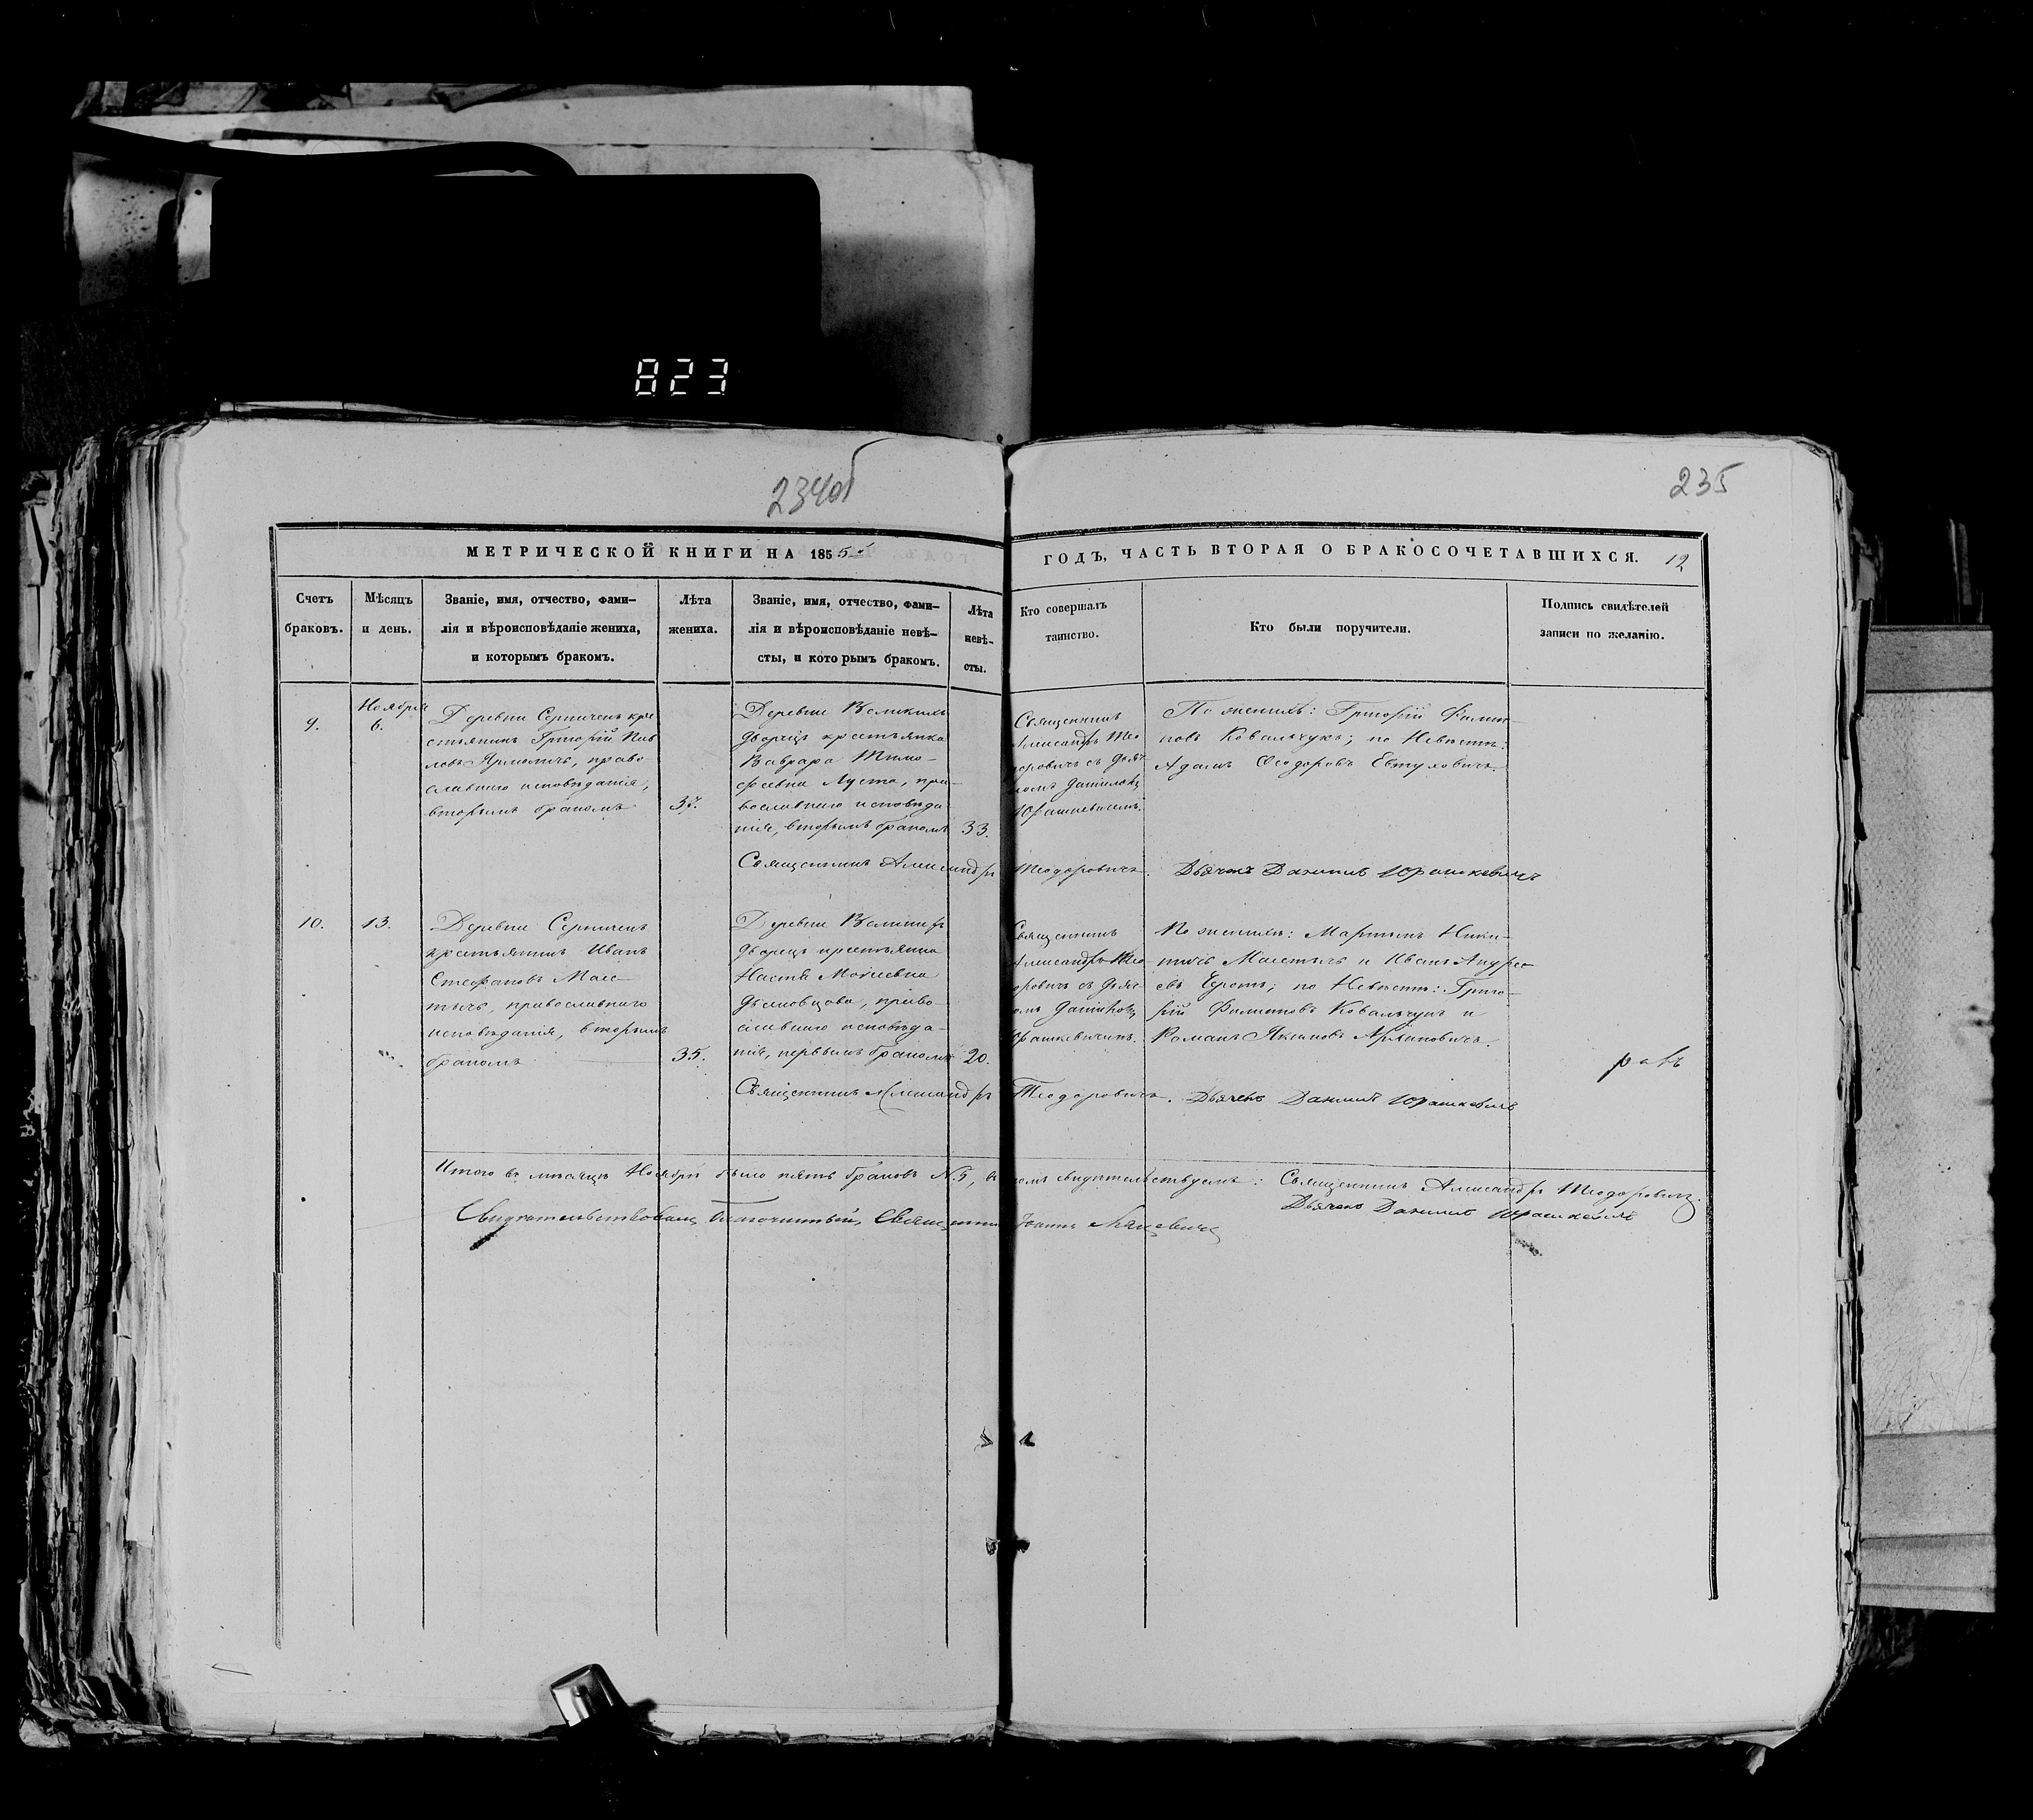 823
234об
235
МЕТРИЧЕСКОЙ КНИГИ НА 1855й
ГОДЪ, ЧАСТЬ ВТОРАЯ О БРАКОСОЧЕТАВШИХСЯ. 12
Счетъ
браковъ.
Мѣсяцъ
и день.
Званіе, имя, отчество, фами-
лія и вѣроисповѣданіе жениха,
и которымъ бракомъ.
Лѣта
жениха.
Званіе, имя, отчество, фами-
лія и вѣроисповѣданіе невѣ-
сты, и которымъ бракомъ.
Лѣта
невѣ-
сты.
Кто совершалъ
таинство.
Кто были поручители.
Подпись свидѣтелей
записи по желанію.
9.
Ноября
6.
Деревни Серничекъ кре
стьянинъ Григорій Пав
ловъ православнаго исповѣданія,
вторымъ бракомъ
37.
Деревни Великихъ
дворецъ крестьянка
Варвара Тимо-
феевна пра-
вославнаго исповѣда
нія, вторымъ бракомъ
33.
Священникъ
Александръ Тео
доровичъ съ дьяч
комъ Даниломъ
Юрашкевичемъ.
По женихѣ: Григорій Филип-
повъ Ковальчукъ; по Невѣстѣ:
Адамъ Ѳеодоровъ Евтуховичъ.
Священникъ Александръ Теодоровичъ. Дьячекъ Данилъ Юрашкевичъ
10.
13.
Деревни Серничекъ
крестьянинъ Иванъ
Стефановъ православнаго
исповѣданія, вторымъ
бракомъ
35.
Деревни Великихъ
дворецъ крестьянка
Настя Моисеевна
право-
славнаго исповѣда-
нія, первымъ бракомъ
20.
Священникъ
Александръ Тео-
доровичъ съ дьяч-
комъ Даниломъ
Юрашкевичемъ.
По женихѣ: Мартинъ Ники-
и Иванъ Андре
евъ по Невѣстѣ: Григо-
рій Филиповъ Ковальчукъ и
Романъ Якимовъ
Священникъ Александръ Теодоровичъ. Дьячекъ Данилъ Юрашкевичъ
Итого въ мѣсяцѣ Ноябрѣ было пять браковъ N.5, въ чемъ свидѣтельствуемъ: Священникъ Александръ Теодоровичъ.
Дьячекъ Данилъ Юрашкевичъ
Свидѣтельствовалъ Благочинный, Священникъ Іоаннъ